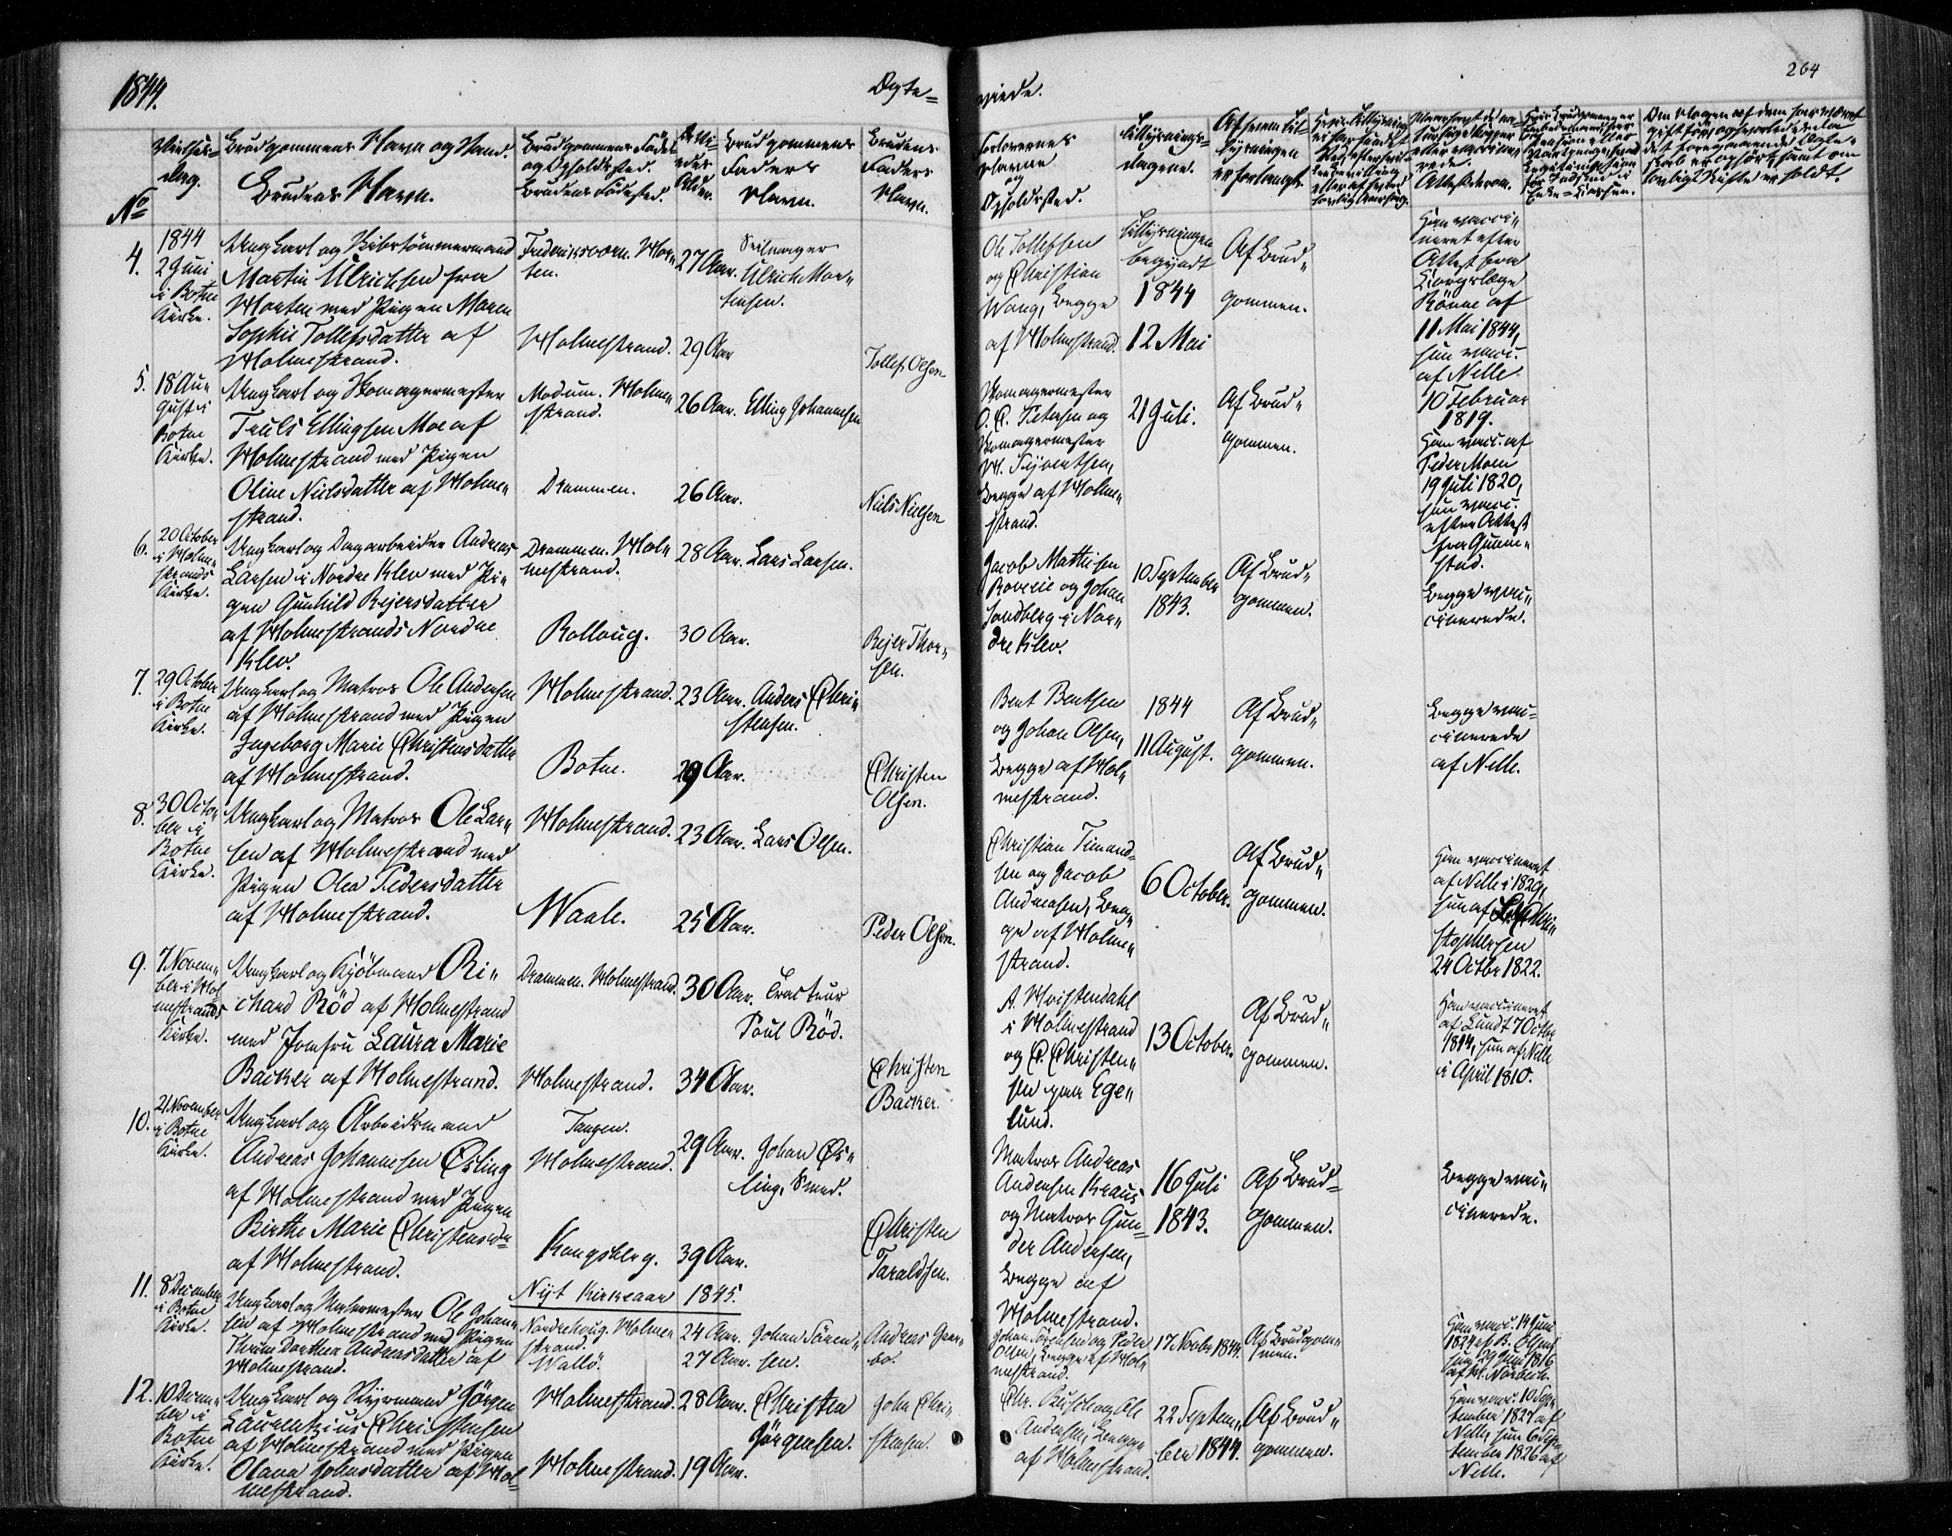 1844.
Ægte=
viede.
264
No
Vielses-
dag.
Brudgommens Navn og Stand.
Brudens Navn.
Brudgommens Föde-
og Opholdssted.
Brudens Födested.
Begges
Alder.
Brudgommens
Faders
Navn.
Brudens
Faders
Navn.
Forlovernes
Navne
og
Opholdssted.
Lillysnings-
dagene.
Af hvem Lil-
lysningen
er forlangt.
4.
1844
2 Juni
i Botne
Kirke.
Ungkarl og Skibstömmermand
Martin Ulrichsen fra
Horten med Pigen Maren
Sophie Tollefsdatter af
Holmestrand.
Frederiksværn. Hor-
ten.
Holmestrand.
27 Aar.
29 Aar
Seilmager
Ulrich Mor-
tensen.
Tollef Olsen
Ole Tollefsen
og Christian
Wang, begge
af Holmestrand.
Lillysningen
begyndt
1844
12 Mai
Af Brud-
gommen.
Han vacci-
neret efter
Attest fra
Korpslæge
Rönne af
11 Mai 1844,
hun vacci.
af Nelle
10 Februar
1819.
5.
18 Au-
gust i
Botne
Kirke.
Ungkarl og Skomagermester
Truls Ellingsen Moe af
Holmestrand med Pigen
Oline Nielsdatter af Holme-
strand.
Modum. Holme-
strand.
Drammen.
26 Aar.
26 Aar.
Elling Johannesen
Niels Nielsen
Skomagermester
O. C. Petersen og
Skomagermester
begge af Holme-
strand.
21 Juli.
Af Brud-
gommen.
Han vacci. af
Peder Moen
19 Juli 1820,
hun vacci.
efter Attest
fra
6.
20 October
i Holme-
strands
Kirke.
Ungkarl og Dagarbeider Andreas
Larsen i Nordre Klev med Pi-
gen Gunhild Rejersdatter
af Holmestrands Nordre
Klev.
Drammen. Hol-
mestrand.
Rolloug.
28 Aar.
30 Aar.
Lars Larsen.
Rejer Thor-
sen.
Jacob Mathisen
Roverie og Johan
Sandberg i Nor-
dre Klev.
10 September
1843.
Af Brud-
gommen.
Begge vac-
cinerede.
7.
29 October
i Botne
Kirke.
Ungkarl og Matros Ole Andersen
af Holmestrand med Pigen
Ingeborg Marie Christensdatter
af Holmestrand.
Holmestrand.
Botne.
23 Aar.
29 Aar.
Anders Chri-
stensen.
Christen
Olsen.
Bent Bentsen
og Johan Olsen,
begge af Hol-
mestrand.
1844
11 August.
Af Brud-
gommen.
Begge vac-
cinerede
af Nelle.
8.
30 Octo-
ber i
Botne
Kirke.
Ungkarl og Matros Ole Lar-
sen af Holmestrand med
Pigen Olea Pedersdatter
af Holmestrand.
Holmestrand.
Waale.
23 Aar.
25 Aar.
Lars Olsen.
Peder Olsen.
Christian Timand-
sen og Jacob
Andreasen, beg-
ge af Holme-
strand.
6 October.
Af Brud-
gommen.
Han vaccineret
af Nelle i 1829,
hun af Chri-
stophersen
24 Octbr 1822.
9.
7 Novem-
ber i Hol-
mestrands
Kirke.
Ungkarl og Kjöbmand Ri-
chard Röd af Holmestrand
med Jomfru Laura Marie
Backer af Holmestrand.
Drammen. Holmestrand.
Holmestrand.
30 Aar.
34 Aar.
Tracteur
Poul Röd.
Christen
Backer.
A. Hvistendahl
i Holmestrand
og C. Christen-
sen paa Ege-
lund.
13 October.
Af Brud-
gommen.
Han vaccineret
af Lundt 7 Octbr
1814, hun af Nelle
i April 1810.
10.
21 November
i Botne
Kirke.
Ungkarl og Arbeidsmand
Andreas Johannesen Esling
af Holmestrand med Pigen
Birthe Marie Christensda-
af Holmestrand.
Tangen.
Holmestrand.
Kongsberg.
29 Aar.
39 Aar.
Johan Es-
ling, Smed.
Christen
Taraldsen.
Matros Andreas
Andersen Kraus
og Matros Gun-
der Andersen,
begge af
Holmestrand.
16 Juli
1843.
Af Brud-
gommen.
Begge vac-
cinerede.
Nyt Kirkeaar 1845.
11.
8 December
i Botne
Kirke.
Ungkarl og Malermester Ole Johan-
sen af Holmestrand med Pigen
Thrine Dorthea Andreasdatter af
Holmestrand.
Nordrehoug. Holme-
strand.
Wallö.
24 Aar.
27 Aar.
Johan Sören-
sen.
Andreas Gaar-
bo.
Johan Sörensen og Peder
Olsen, begge af Hol-
mestrand.
17 Novbr 1844.
Af Brudgom-
men.
Han vacc. 14 Juni
1824 af B. Olsen,
hun 29 Juni 1819
12.
10 Decem-
ber i
Botne
Kirke.
Ungkarl og Styrmand Jörgen
Laurentzius Christensen
af Holmestrand med Pigen
Olava Johnsdatter af Hol-
mestrand.
Holmestrand.
Holmestrand.
28 Aar.
19 Aar.
Christen
Jörgensen.
John Chri-
stensen.
Chr. Busch og Ole
Andersen, begge
af Holmestrand.
22 Septem-
ber 1844.
Af Brud-
gommen.
Han vacc. 10 Sep-
tember 1827 af
Nelle, hun 6 Sep-
tember 1826 af
Nelle.